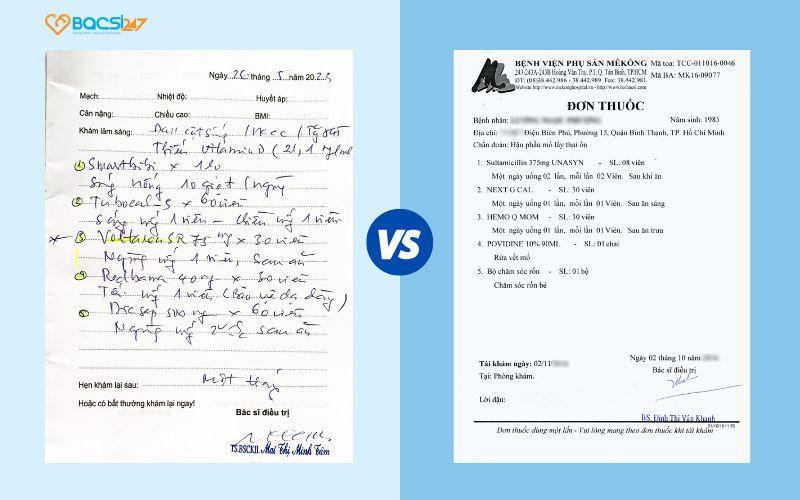 BACSI247
Ngày 26 tháng 5 năm 2023
Mạch: Nhiệt độ: Huyết áp:
Cân nặng: Chiều cao: BMI:
Khám lâm sàng: Đau cột sống
Thiếu Vitamin D (21,1
① Smartbibi x 1 lọ
Sáng uống 10 giọt / ngày
② Turbocal-S x 60 viên
Sáng uống 1 viên - chiều uống 1 viên
③ Voltaren SR 75 mg x 30 viên
Ngày uống 1 viên, sau ăn
④ 40 mg x 30 viên
Tối uống 1 viên (bảo vệ dạ dày)
⑤ 500 mg x 60 viên
Ngày uống sau ăn
Hẹn khám lại sau: Một tháng
Hoặc có bất thường khám lại ngay!
Bác sĩ điều trị
TS.BSCKII. Mai Thị Minh Tâm
VS
BỆNH VIỆN PHỤ SẢN MÊKÔNG
243-243A-243B Hoàng Văn Thụ, P.1, Q. Tân Bình, TP.HCM
ĐT: (08)38.442.986 - 38.442.989 - Fax: 38.442.981
Website http://www.mekonghospital.vn - http://www.hoibacsi.com
Mã toa: TCC-011016-0046
Mã BA: MK16-09077
ĐƠN THUỐC
Bệnh nhân: Năm sinh: 1985
Địa chỉ: Điện Biên Phủ, Phường 15, Quận Bình Thạnh, TP. Hồ Chí Minh
Chẩn đoán: Hậu phẫu mổ lấy thai ổn
1. Sultamicillin 375mg UNASYN - SL: 08 viên
Một ngày uống 02 lần, mỗi lần 02 Viên. Sau khi ăn
2. NEXT G CAL - SL: 30 viên
Một ngày uống 01 lần, mỗi lần 01 Viên. Sau ăn sáng
3. HEMO Q MOM - SL: 30 viên
Một ngày uống 01 lần, mỗi lần 01 Viên. Sau ăn trưa
4. POVIDINE 10% 90ML - SL: 01 chai
Rửa vết mổ
5. Bộ chăm sóc rốn - SL: 01 bộ
Chăm sóc rốn bé
Tái khám ngày: 02/11/
Tại: Phòng khám.
Lời dặn:
Ngày 02 tháng 10 năm
Bác sĩ điều trị
BS. Đinh Thị Vân Khanh
Đơn thuốc dùng một lần - Vui lòng mang theo đơn thuốc khi tái khám